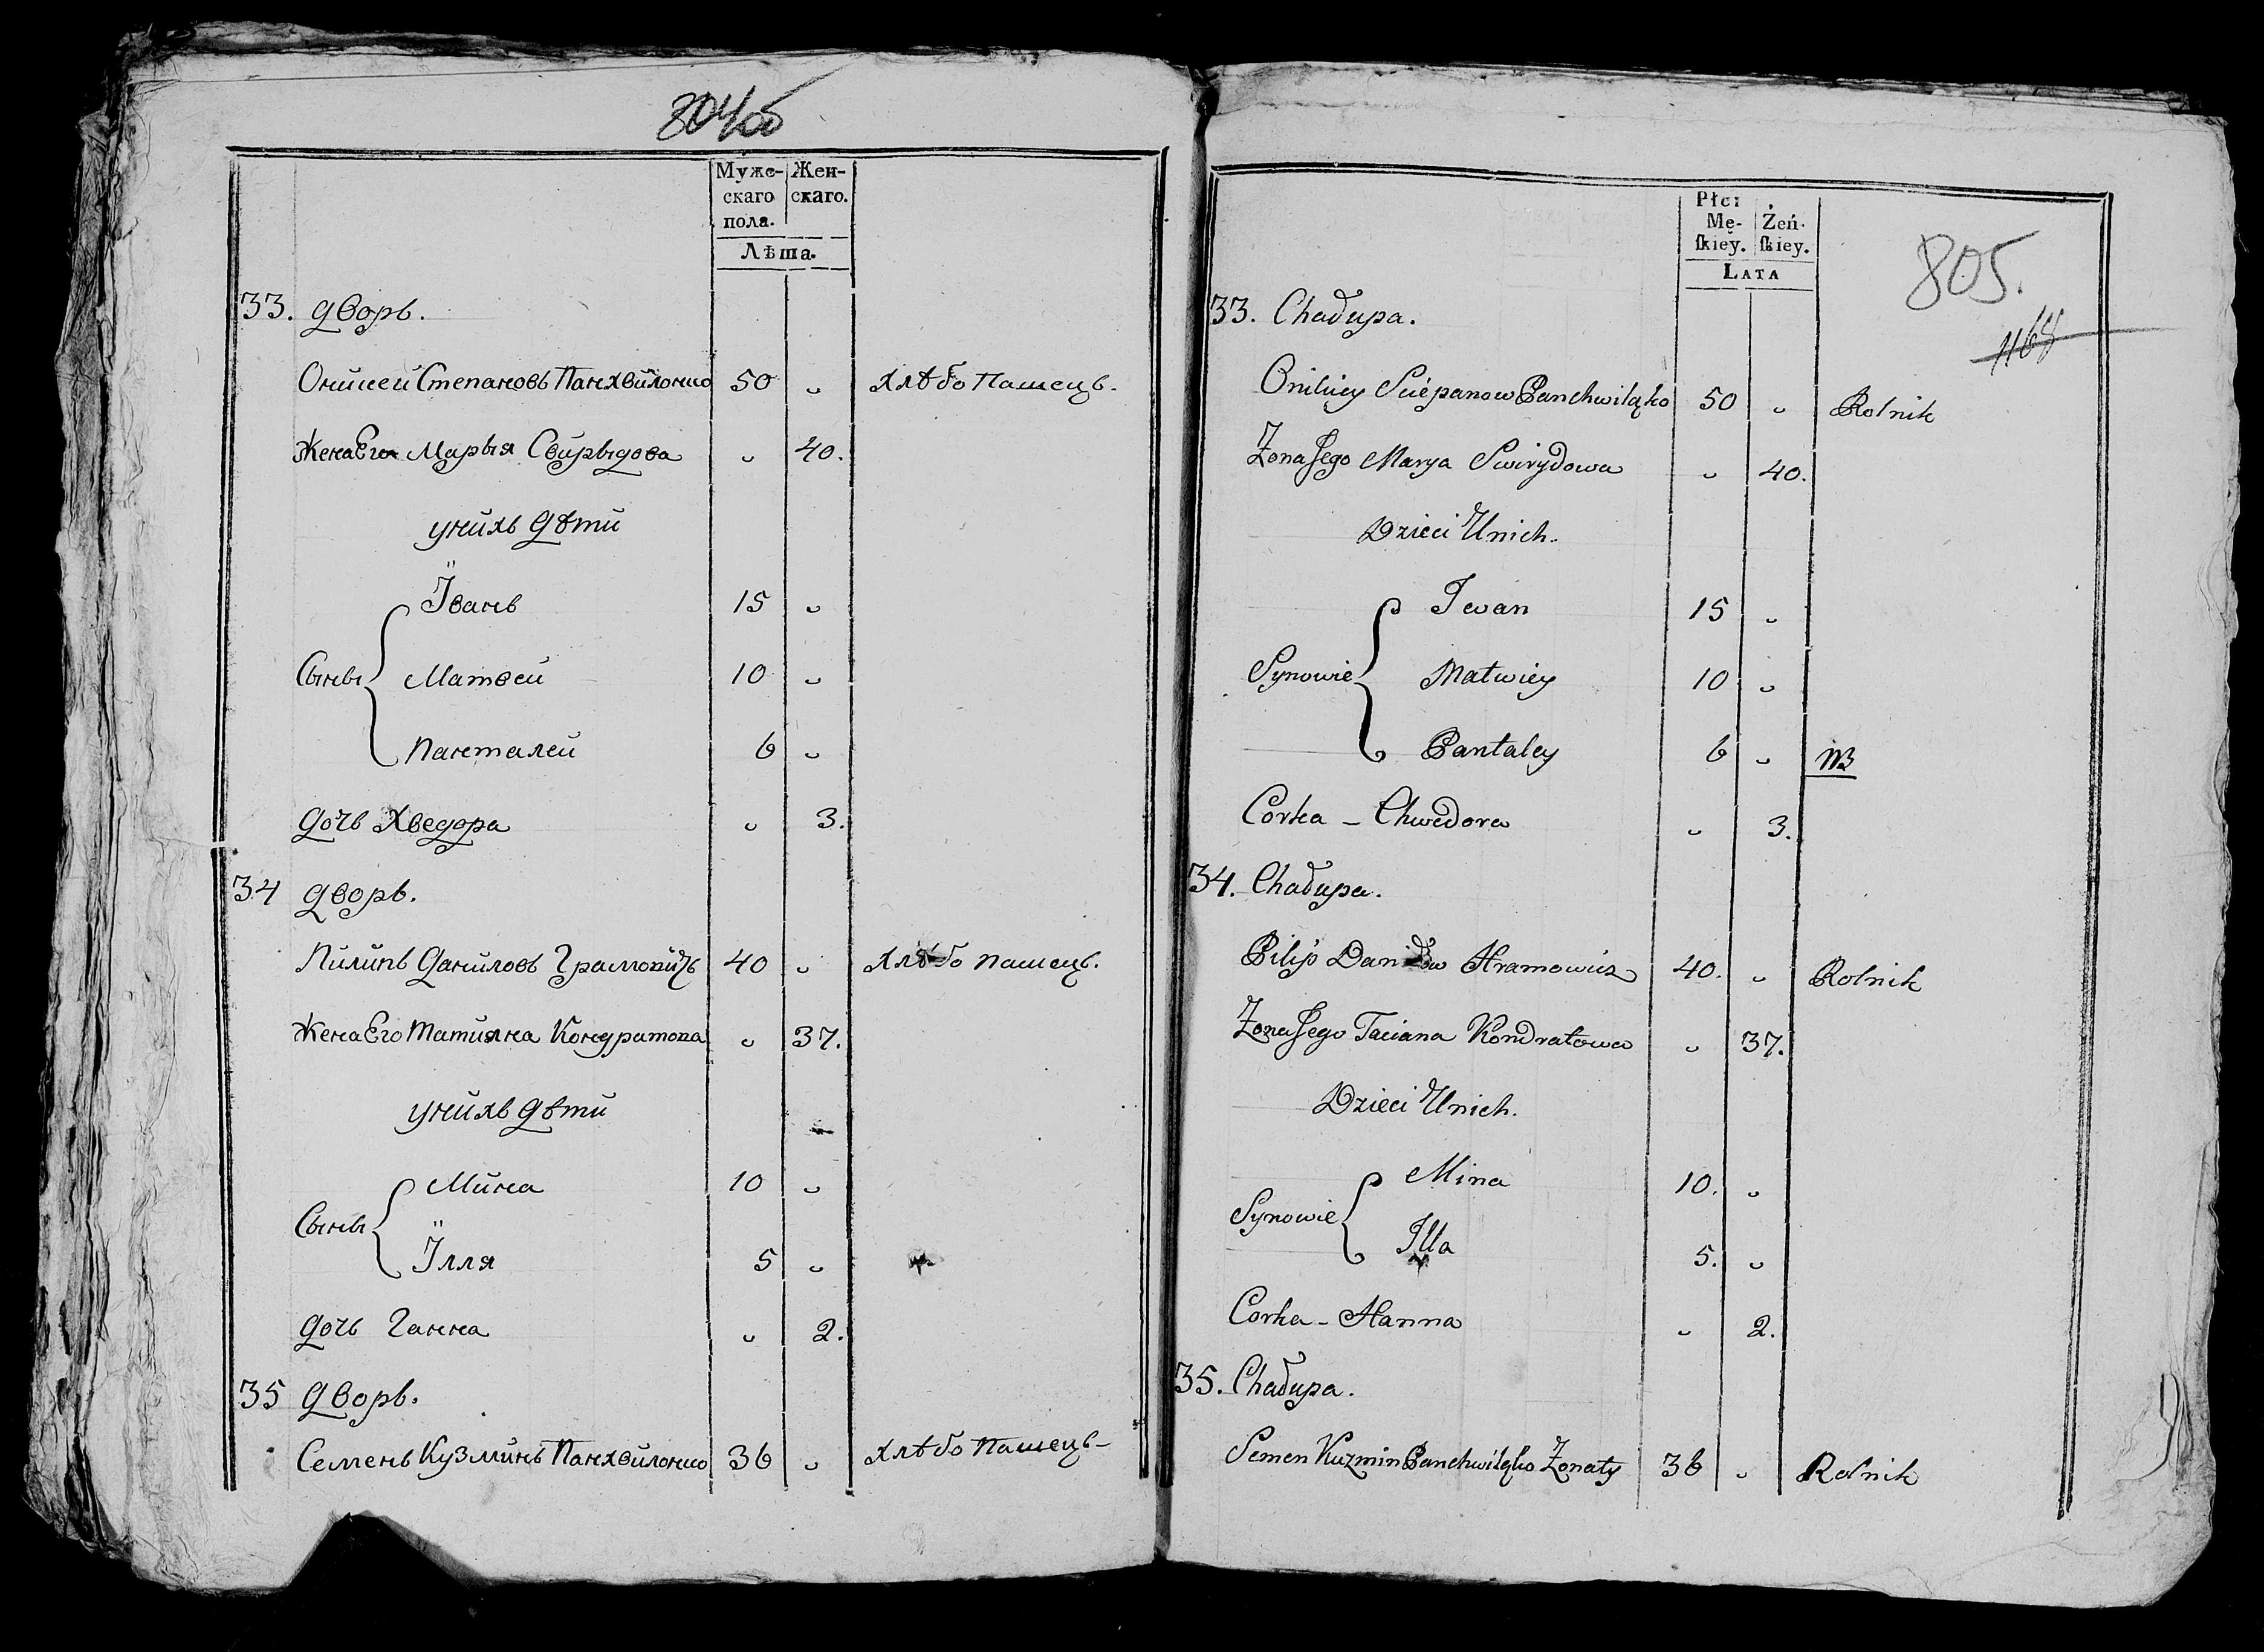 804об
Муже- Жен-
скаго скаго.
пола.
Лѣта.
33. дворъ.
Онисей Степановъ Панхвилонко 50 „ Хлѣбо Пашецъ.
Жена Его Марыя Свирыдова „ 40.
у нихъ дѣти
Іванъ 15 „
Сыны Матвей 10 „
Панталей 6 „
дочь Хведора „ 3.
34 дворъ.
Пилипъ Даниловъ 40 „ Хлѣбо пашецъ.
Жена Его Татияна Кондратова „ 37.
у нихъ дѣти
Мина 10 „
Сыны
Ілля 5 „
дочь Ганна „ 2.
35 дворъ.
Семенъ Кузминъ Панхвилонко 36 „ Хлѣбо Пашецъ
Płci
Mę- Żeń-
ſkiey. ſkiey.
LATA
805.
1168
33. Chałupa.
Sciepanow Panchwiląko 50 „ Rolnik
Zona Jego Marya Swirydowa „ 40.
Dzieci Unich.
Iwan 15 „
Synowie Matwiey 10 „
Pantaley 6 „
Corka - Chwedora „ 3.
34. Chałupa.
Pilip Daniłow Hramowicz 40. „ Rolnik
Zona Jego Taciana Kondratowa „ 37.
Dzieci Unich.
Mina 10. „
Synowie
Illa 5. „
Corka - Hanna „ 2.
35. Chałupa.
Semen Kuzmin Panchwiląko Zonaty 36 „ Rolnik